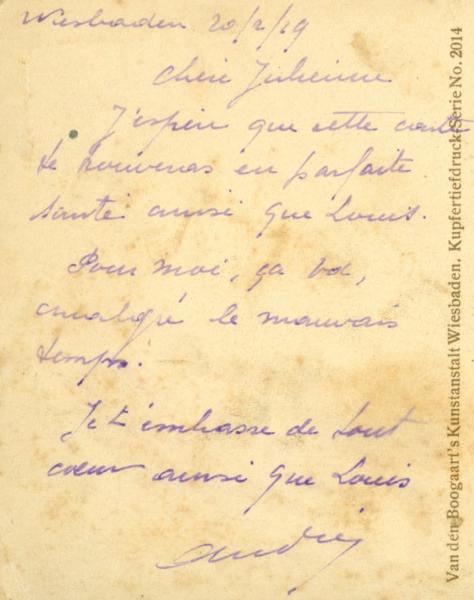 Wiesbaden 20/2/19
Chère Julienne
J'espère que cette carte
te trouveras en parfaite
santé ainsi que Louis.
Pour moi, ça va,
malgré le mauvais
temps.
Je t'embrasse de tout
cœur ainsi que Louis
André
Van den Boogaart's Kunstanstalt Wiesbaden. Kupfertiefdruck Serie No. 2014